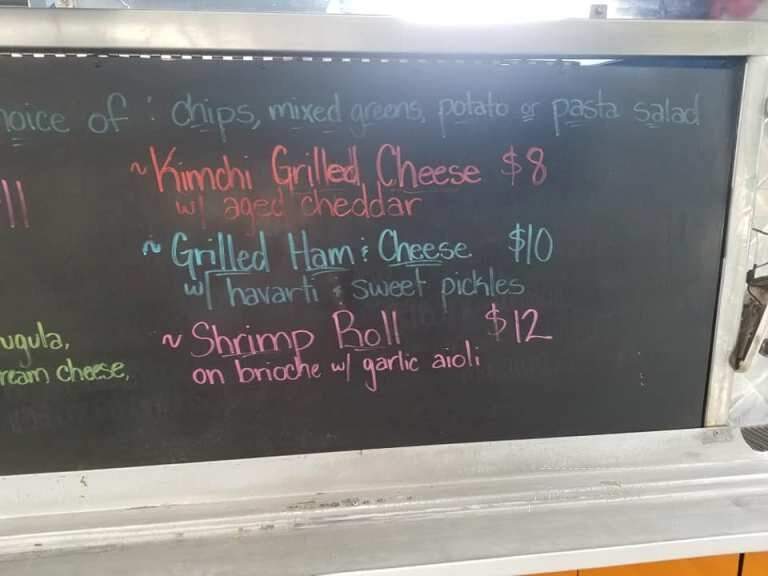 hoice of : chips, mixed greens, potato or pasta salad
~ Kimchi Grilled Cheese $8
w/ aged cheddar
ll
~ Grilled Ham & Cheese $10
w/ havarti & sweet pickles
~ Shrimp Roll $12
ugula,
on brioche w/ garlic aioli
ream cheese,